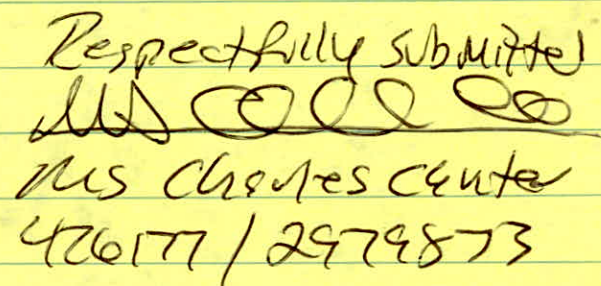 Respectfully Submitted
MS Charles Center
426177 / 2979873